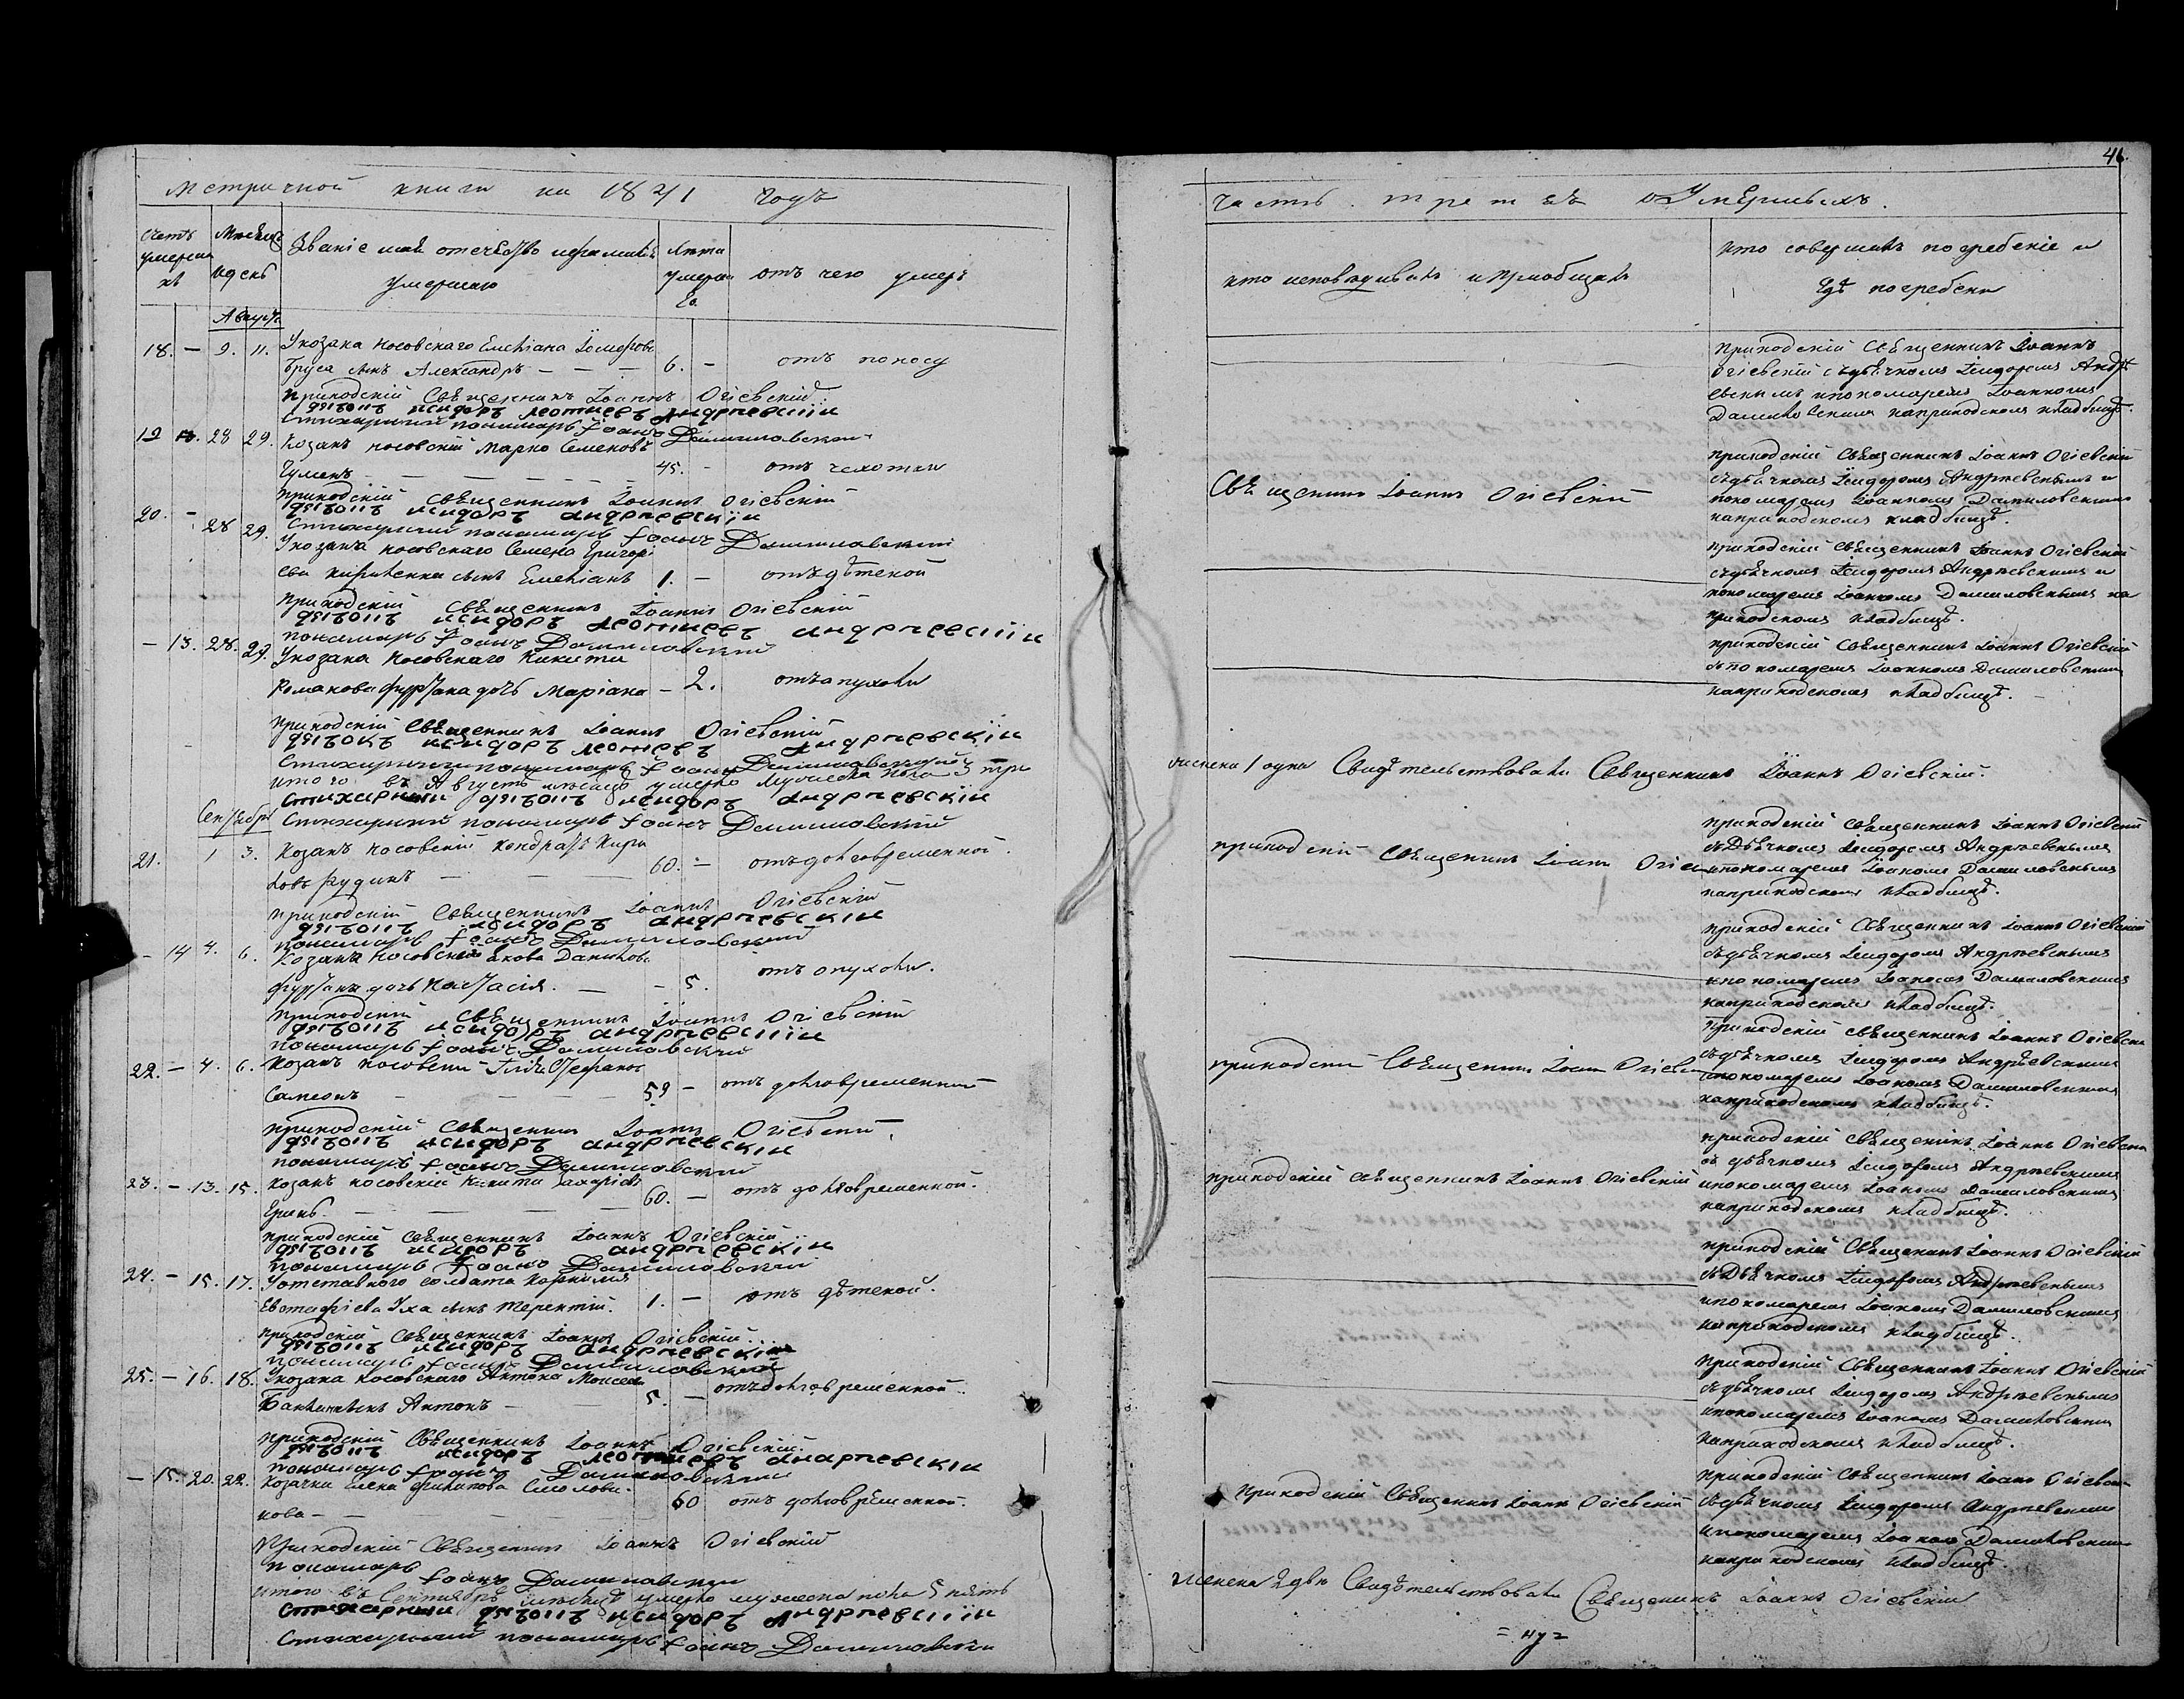 46.
Метричной книги на 1841 годъ
Счетъ умершихъ
Мѣсяцъ и день
Званіе имя отечество и фамилія умершаго
Лѣта умершаго
отъ чего умеръ
Августъ
18. — 9. 11. У козака носовскаго Емеліана
Бруса сынъ Александръ — — — 6. — отъ поносу
приходскій Священникъ Іоаннъ Огіевскій
дячокъ исидоръ леонтиевъ андриевский
Стихарный пономарь Іоанъ Даниловский
19 28 29. Козакъ носовскій Марко Семеновъ
45. — отъ чехотки
приходскій Священникъ Іоаннъ Огіевскій
дячокъ исидоръ андриевский
Стихарный пономарь Іоанъ Даниловский
20. — 28 29. У козака носовскаго Семена Григорі
ева сынъ Емеліанъ 1. — отъ дѣтской
приходскій Священникъ Іоаннъ Огіевскій
дячокъ исидоръ леонтиевъ андриевский
пономарь Іоанъ Даниловский
— 13. 28. 29. У козака Носовскаго Никиты
Романова дочь Маріана — 2. отъ опухоли
приходскій Священникъ Іоаннъ Огіевскій
дячокъ исидоръ леонтиевъ андриевский
Стихарный пономарь Іоанъ Даниловский
итого въ Августѣ мѣсяцѣ умерло мужеска пола 3 три
Стихарный дячокъ исидоръ андриевский
Стихарный пономарь Іоанъ Даниловский
Сентябрь
21. 1 3. Козакъ носовскій Кондратъ Кири
ловъ Рудикъ — — — 60. — отъ долговременной.
приходскій Священникъ Іоаннъ Огіевскій
дячокъ исидоръ андриевский
пономарь Іоанъ Даниловский
— 14 4. 6. Козака Носовскаго Якова Данилова
дочь Настасія. — — 5. отъ опухоли.
приходскій Священникъ Іоаннъ Огіевскій
дячокъ исидоръ андриевский
пономарь Іоанъ Даниловский
22. — 4. 6. Козакъ носовскій Стефановъ
Самсонъ — — — 59 — отъ долговременной
приходскій Священникъ Іоаннъ Огіевскій
дячокъ исидоръ андриевский
пономарь Іоанъ Даниловский
23. — 13. 15. Козакъ носовскій Никита Захаріевъ
60. — отъ долговременной.
приходскій Священникъ Іоаннъ Огіевскій
дячокъ исидоръ андриевский
пономарь Іоанъ Даниловский
24. — 15. 17. У отставного солдата
сынъ Терентій. 1. — отъ дѣтской.
приходскій Священникъ Іоаннъ Огіевскій
дячокъ исидоръ андриевский
пономарь Іоанъ Даниловский
25. — 16. 18. У козака носовскаго Антона Моисеева
сынъ Антонъ — 5. — отъ долговременной.
приходскій Священникъ Іоаннъ Огіевскій
дячокъ исидоръ леонтиевъ андриевский
пономарь Іоанъ Даниловский
— 15. 20. 22. Козачка Елена Филипова
нова — — — 60 отъ долговременной.
Приходскій Священникъ Іоаннъ Огіевскій
пономарь Іоанъ Даниловский
итого въ Сентябрѣ мѣсяцѣ умерло мужеска пола 5 пять
Стихарный дячокъ исидоръ андриевский
Стихарный пономарь Іоанъ Даниловский
часть третья о Умершихъ.
кто исповѣдывалъ и пріобщалъ
кто совершалъ погребеніе и гдѣ погребены
приходскій Священникъ Іоаннъ
Огіевскій съ дьячкомъ Ісидоромъ Андрі
евскимъ и пономаремъ Іоанномъ
Даниловскимъ на приходскомъ кладбищѣ.
Священникъ Іоаннъ Огіевскій
приходскій Священникъ Іоаннъ Огіевскій
съ дьячкомъ Ісидоромъ Андріевскимъ и
пономаремъ Іоанномъ Даниловскимъ
на приходскомъ кладбищѣ.
приходскій Священникъ Іоаннъ Огіевскій
съ дьячкомъ Ісидоромъ Андріевскимъ и
пономаремъ Іоанномъ Даниловскимъ на
приходскомъ кладбищѣ.
приходскій Священникъ Іоаннъ Огіевскій
съ пономаремъ Іоанномъ Даниловскимъ
на приходскомъ кладбищѣ.
женска 1 одна Свидѣтельствовалъ Священникъ Іоаннъ Огіевскій.
приходскій Священникъ Іоаннъ
приходскій Священникъ Іоаннъ Огіевскій
съ Дьячкомъ Ісидоромъ Андріевскимъ
и пономаремъ Іоанномъ Даниловскимъ
на приходскомъ кладбищѣ.
приходскій Священникъ Іоаннъ Огіевскій
съ дьячкомъ Ісидоромъ Андріевскимъ
и пономаремъ Іоанномъ Даниловскимъ
на приходскомъ кладбищѣ.
приходскій Священникъ Іоаннъ
приходскій Священникъ Іоаннъ
съ дьячкомъ Ісидоромъ Андріевскимъ
и пономаремъ Іоанномъ Даниловскимъ
на приходскомъ кладбищѣ.
приходскій Священникъ Іоаннъ Огіевскій
приходскій Священникъ Іоаннъ
съ дьячкомъ Ісидоромъ Андріевскимъ
и пономаремъ Іоанномъ Даниловскимъ
на приходскомъ кладбищѣ.
приходскій Священникъ Іоаннъ Огіевскій
съ Дьячкомъ Ісидоромъ Андріевскимъ
и пономаремъ Іоанномъ Даниловскимъ
на приходскомъ кладбищѣ.
приходскій Священникъ Іоаннъ Огіевскій
съ дьячкомъ Ісидоромъ Андріевскимъ
и пономаремъ Іоанномъ Даниловскимъ
на приходскомъ кладбищѣ.
приходскій Священникъ Іоаннъ Огіевскій
приходскій Священникъ Іоаннъ
съ дьячкомъ Ісидоромъ Андріевскимъ
и пономаремъ Іоанномъ Даниловскимъ
на приходскомъ кладбищѣ.
женска 2 двѣ Свидѣтельствовалъ Священникъ Іоаннъ Огіевскій